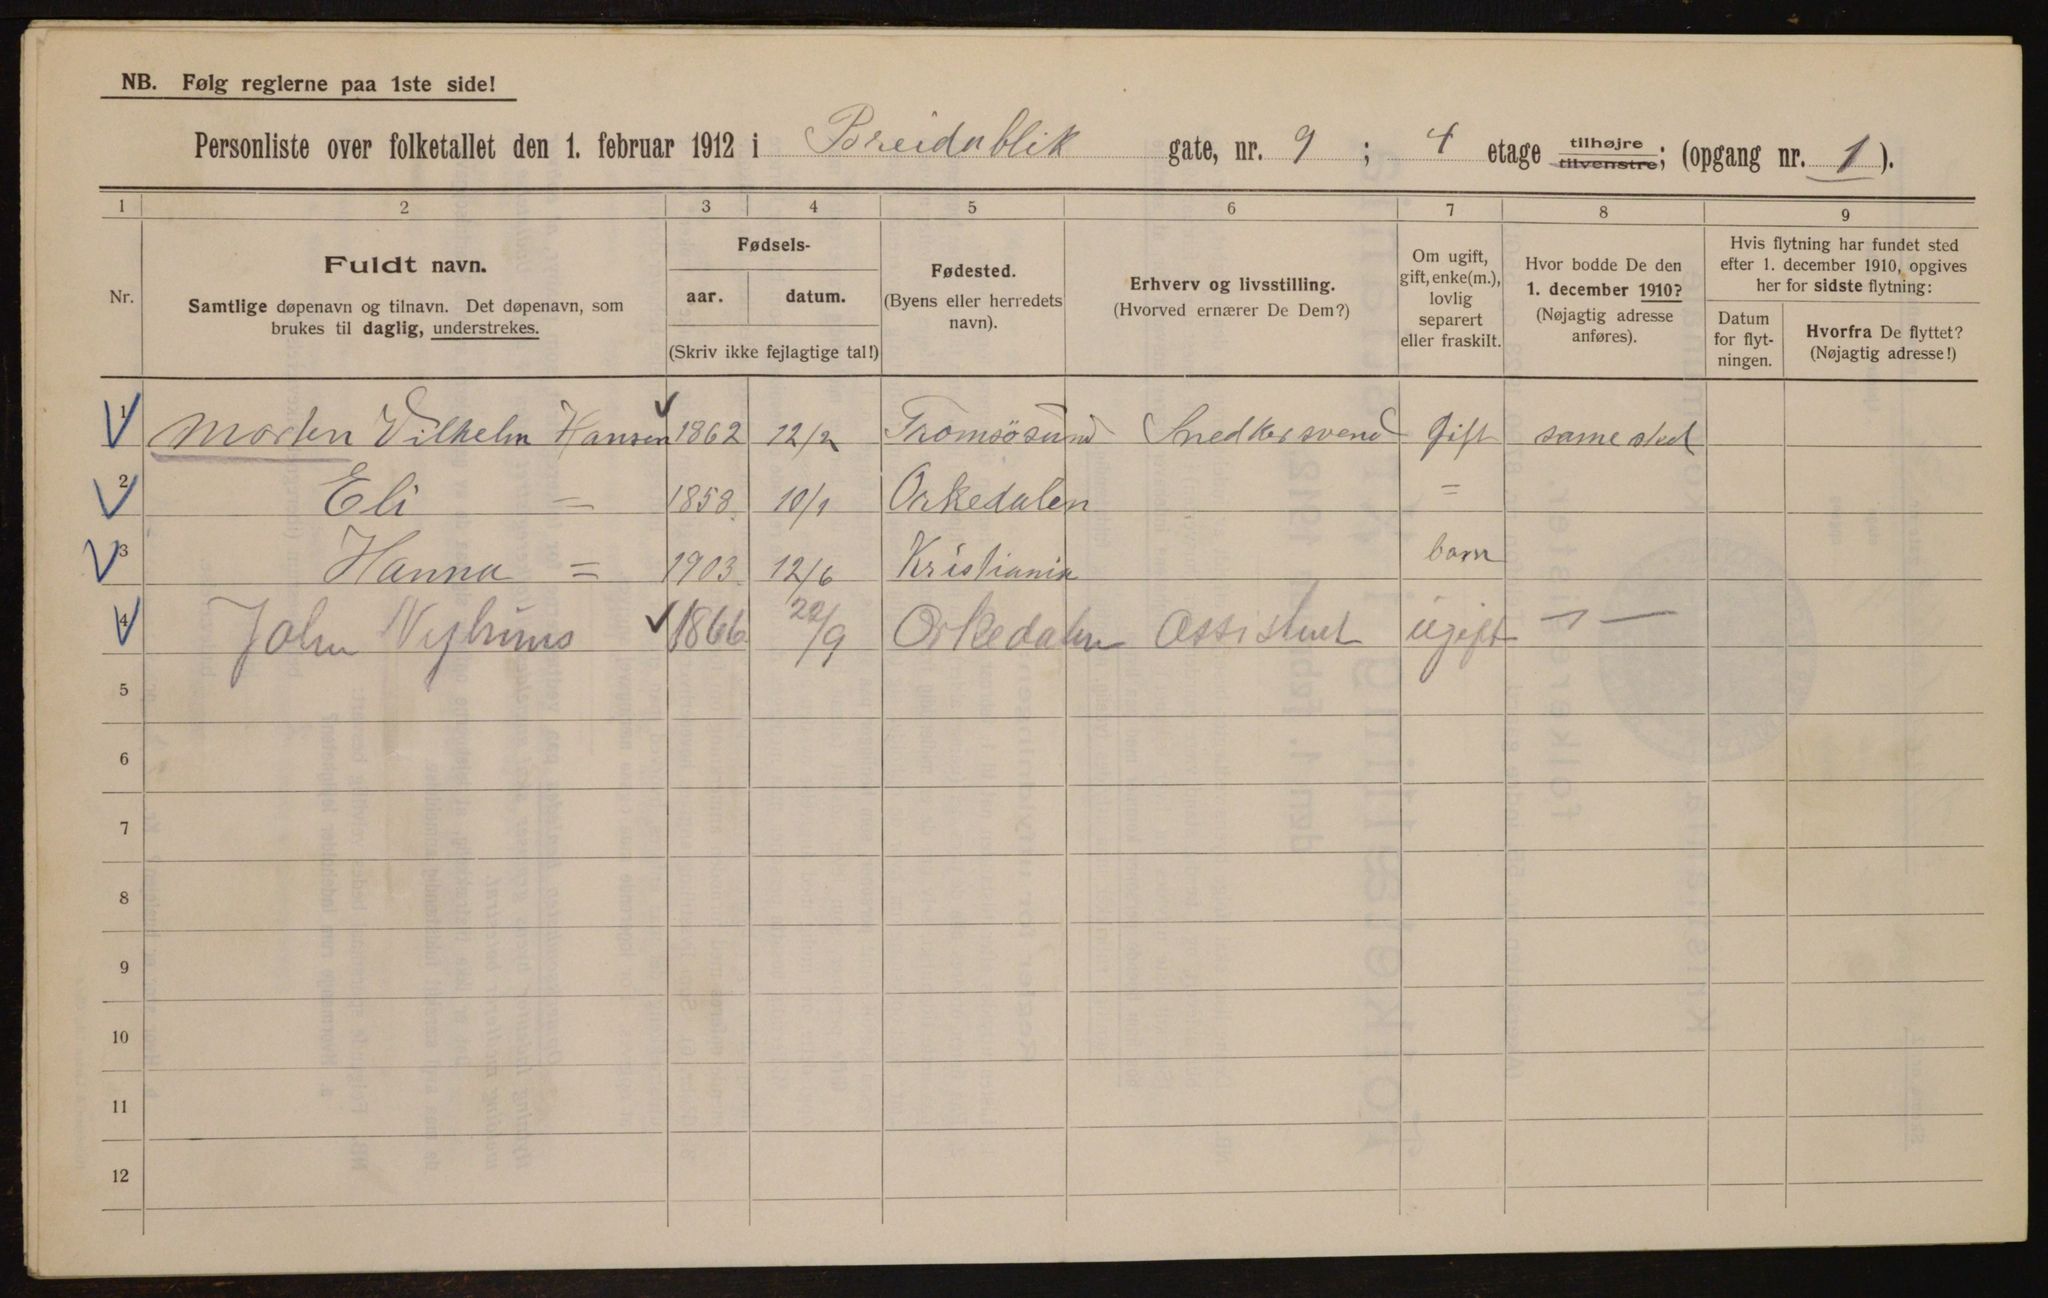 NB. Følg reglerne paa 1ste side!
Personliste over folketallet den 1. februar 1912 i Breidablik gate, nr. 9 ; 4 etage tilhøjre tilvenstre; (opgang nr. 1 ).
1 2 3 4 5 6 7 8 9
Nr.
Fuldt navn.
Samtlige døpenavn og tilnavn. Det døpenavn, som
brukes til daglig, understrekes.
Fødsels-
aar. datum.
(Skriv ikke fejlagtige tal!)
Fødested.
(Byens eller herredets
navn).
Erhverv og livsstilling.
(Hvorved ernærer De Dem?)
Om ugift,
gift, enke(m.),
lovlig
separert
eller fraskilt.
Hvor bodde De den
1. december 1910?
(Nøjagtig adresse
anføres).
Hvis flytning har fundet sted
efter 1. december 1910, opgives
her for sidste flytning:
Datum
for flyt-
ningen.
Hvorfra De flyttet?
(Nøjagtig adresse!)
1 Morten Vilhelm Hansen 1862 12/2 Tromsøsund Snedkersvend Gift same sted
2 Eli = 1858 10/1 Orkedalen =
3 Hanna = 1903 12/6 Kristiania barn
4 John 1866 22/9 Orkedalen Assistent ugift — —
5
6
7
8
9
10
11
12